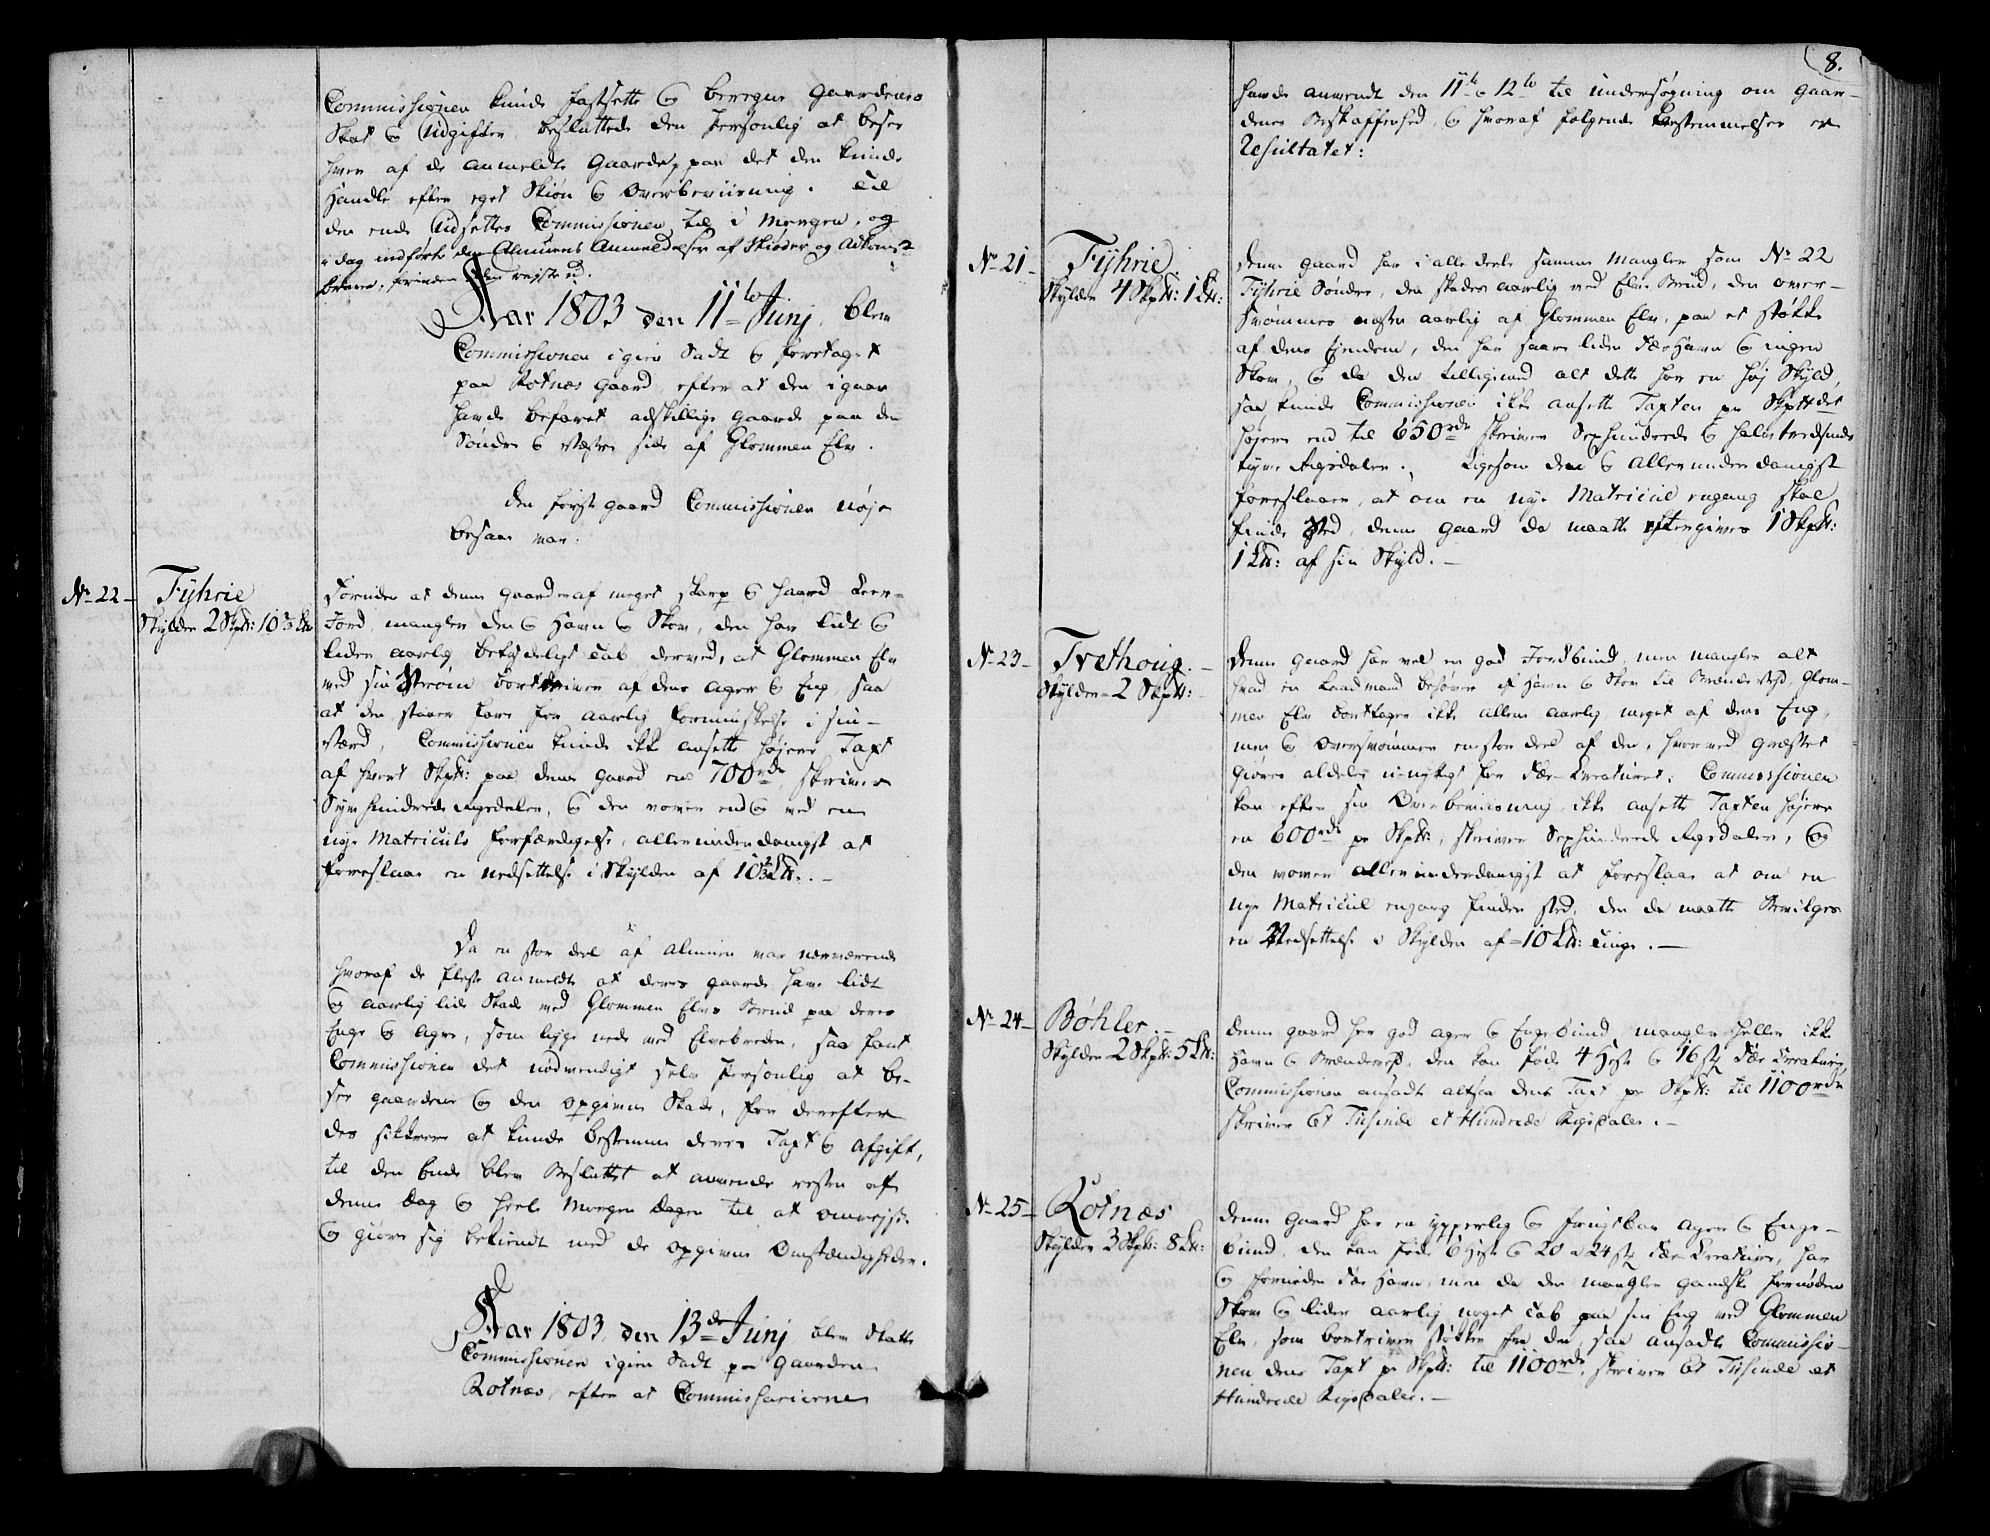 Commissionen kunde fastsette & beregne Gaardenes
Skat & Udgifter, besluttede den Personlig at besee
hver af de anmeldte Gaarde, paa det den kunde
handle efter eget Skiøn & Overbeviisning. Til
den ende Udsettes Commissionen til i Morgen, og
i dag indførte den Almuens Anmeldelser af Skiøder og Adkomst
breve, forinden den rejste ud.
Aar 1803 den 11te Junj, blev
Commissionen igien Sadt & foretaget
paa Rotnæs Gaard, efter at den igaar
havde befaret adskillige Gaarde paa den
Søndre & Vestre side af Glommen Elv.
Den første Gaard Commissionen nøje
besaae var:
No 22 Fyhrie
Skylder 2 Skpd: 10 2/3 Ld:
Foruden at denne Gaard er af meget skarp & haard Leer-
Jord, mangler den & Havn & Skov, den har lidt &
lider aarlig betydeligt Tab derved, at Glommen Elv
ved sin Strøm bortdriver af dens Ager & Eng, saa
at den staaer fare for aarlig Forminskelse i sin
Værd, Commissionen kunde ikke ansette højere Taxt
af hvert Skpd: paa denne Gaard end 700 rdr, skriver
Syv hundrede Rigsdaler, & den vover end & ved en
nye Matriculs forfærdigelse, allerunderdanigst at
foreslaae en nedsettelse i Skylden af 10 2/3 Ld:. -
Da en stor deel af Almuen var nærværende
hvoraf de fleste anmeldte at deres Gaarde have lidt
og aarlig lide Skade ved Glommen Elvs Brud paa deres
Enge & Agre, som ligge nede ved Elvebredden, saa fant
Commissionen det nødvendigt selv Personlig at be-
see Gaardene & den opgivne Skade, for derefter
des sikkrere at kunde bestemme deres Taxt & Afgift,
til den Ende blev Besluttet at anvende resten af
denne Dag & heele Morgen Dagen til at omrejse
& giøre sig bekiendt med de opgivne Omstændigheder.
Aar 1803, den 13de Junj blev Skatte
Commissionen igien Sadt paa Gaarden
Rotnæs, efter at Commissarierne
8.
havde anvendt den 11te & 12te til undersøgning om Gaar-
denes Beskaffenhed, & hvoraf følgende Bestemmelser er
Resultatet:
No 21 Fyhrie
Skylder 4 Skpd: 1 Ld:
Denne Gaard har i alle deele samme Mangler som No 22
Fyhrie Søndre, den skades aarlig ved Elve Brud, den over-
svømmes næsten aarlig af Glommen Elv, paa et støkke
af dens Ejendom, den har saare liden Fæe Havn & ingen
Skov, & da den tilligemed alt dette har en høj Skyld,
saa kunde Commissionen ikke ansette Taxten pr Skpd det
højere end til 650 rdr skriver Sexhundrede & halvtredsinds
tyve Rigsdaler. Ligesom den & Allerunderdanigst
foreslaaer, at om en nye Matricul engang skal
finde Sted, denne Gaard da maatte eftergives 1 Skpd:
1 Ld: af sin Skyld. -
No 23 Trethoug. -
Skylder 2 Skpd:
Denne Gaard har vel en god Jordbund, men mangler alt
hvad en Landmand behøver af Havn & Skov til Brændeved, Glom-
men Elv borttager ikke allene aarlig noget af dens Eng,
men & Oversvømmer en stor deel af den, hvorved Græsset
giøres aldeles unyttigt for Fæe-Kreaturet. Commissionen
kan efter sin Overbeviisning, ikke ansette Taxten højere
en 600 rdr pr Skpd:, skriver Sexhundrede Rigsdaler, &
den vover allerunderdanigst at foreslaae at om en
nye Matricul engang finder sted, den da maatte bevilges
en Nedsettelse i Skylden af 10 Ld: Tunge. -
No 24 Bøhler -
Skylder 2 Skpd: 5 Ld:
Denne Gaard har god Ager & Engebund, mangler heller ikke
Havn & Brændeved, den kan føde 4 Heste & 16 stk Fæe Kreature,
Commissionen ansadt altsaa dens Taxt pr Skpd: til 1100 rdr
skriver Et Tusinde et Hundrede Rigsdaler. -
No 25 Rotnæs
Skylder 3 Skpd: 8 Ld:
Denne Gaard har en ypperlig & frugtbar Ager & Enge-
bund, den kan føde 6 Heste & 20 a 24 stk Fæe-Kreature, har
& fornøden Fæe Havn, men da den mangler gandske fornøden
Skov & lider aarlig noget Tab paa sin Eng ved Glommen
Elv, som bortriver støkker fra den, saa ansadte Commissio-
nen dens Taxt pr Skpd: til 1100 rdr, skriver Et Tusinde et
Hundrede Rigsdaler. -